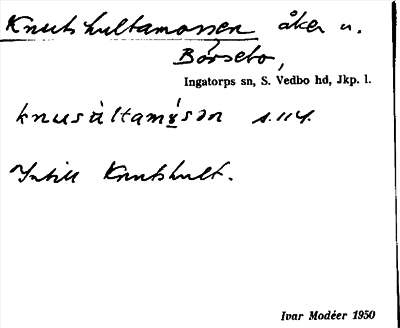 Knutshultamossen åker u.
Börsebo,
Ingatorps sn, S. Vedbo hd, Jkp. l.
knusùltamý̲sən s. 114.
Intill Knutshult.
Ivar Modéer 1950